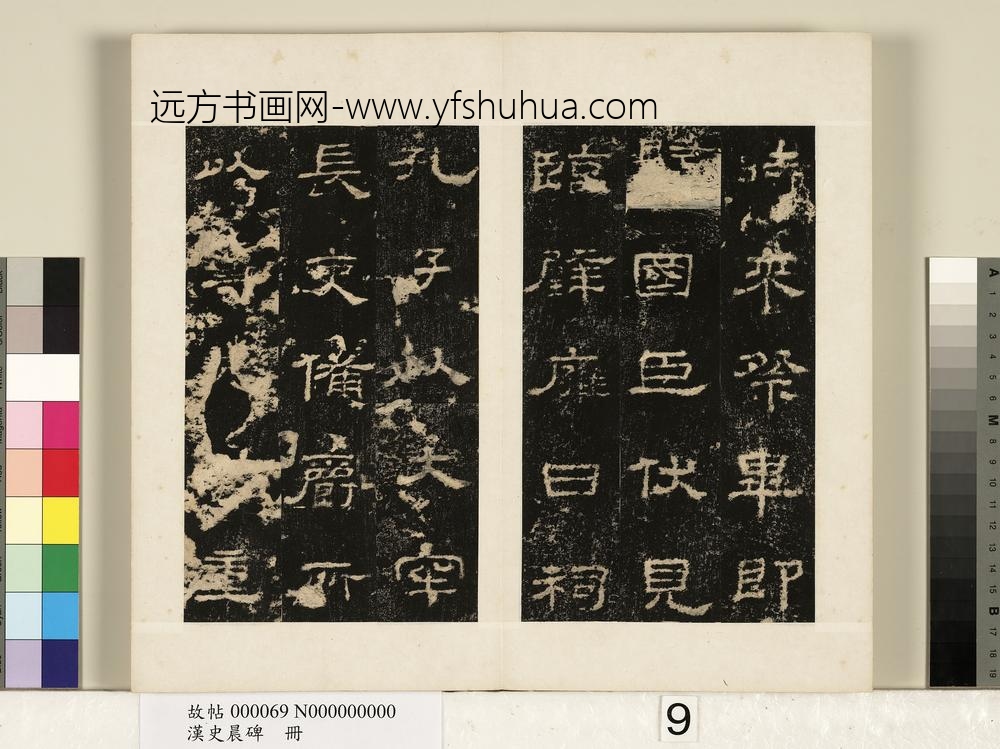 远方书画网-www.yfshuhua.com
時來祭畢即
國臣伏見
臨辟雍日祠
孔子以大牢
長史備爵所
以尊重
A 1 2 3 4 5 6 M 8 9 10 11 12 13 14 15 B 17 18 19
故帖 000069 N000000000
漢史晨碑 冊
9